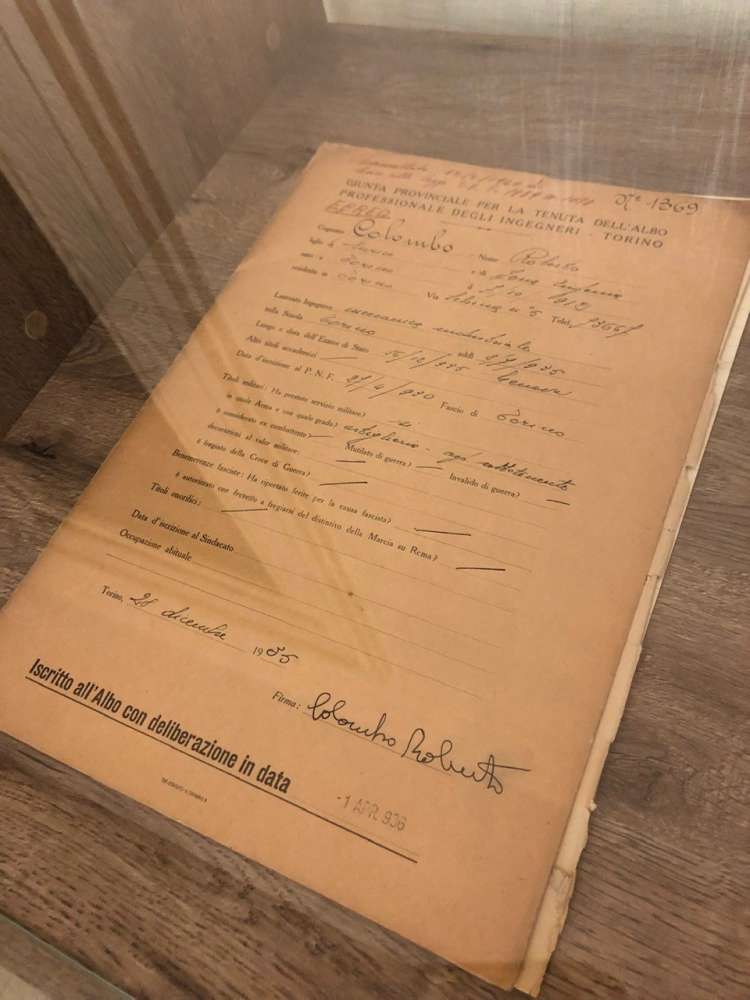 Nº 1369
GIUNTA PROVINCIALE PER LA TENUTA DELL'ALBO
PROFESSIONALE DEGLI INGEGNERI - TORINO
EBREO
Cognome Colombo Nome Roberto
figlio di e di
nato a Torino il
residente in Torino Via N 5 Telef.
Laureato Ingegnere meccanico industriale
nella Scuola Torino addì
Luogo e data dell'Esame di Stato
Altri titoli accademici —
Data d'iscrizione al P. N. F. Fascio di Torino
Titoli militari: Ha prestato servizio militare? si
in quale Arma e con quale grado? artiglieria -
è considerato ex combattente? — Mutilato di guerra? — Invalido di guerra? —
decorazioni al valor militare: —
è fregiato della Croce di Guerra? —
Benemerenze fasciste: Ha riportato ferite per la causa fascista? —
è autorizzato con brevetto a fregiarsi del distintivo della Marcia su Roma? —
Titoli onorifici: —
Data d'iscrizione al Sindacato
Occupazione abituale
Torino, 28 dicembre 1935
Firma: Colombo Roberto
Iscritto all'Albo con deliberazione in data
-1 APR. 936